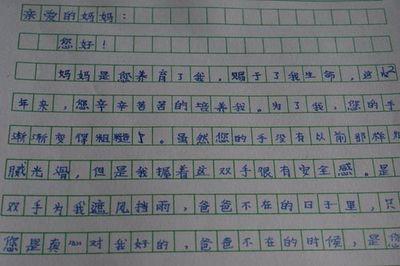 亲爱的妈妈：
您好！
妈妈是您养育了我，赐予了我生命，这
年来，您辛辛苦苦的培养我。为了我，您的手
渐渐变得粗糙了。虽然您的手没有以前那样
腻光滑，但是我握着这双手很有安全感。是
双手为我遮风挡雨，爸爸不在的日子里，只
您是真心对我好的，爸爸不在的时候，是您